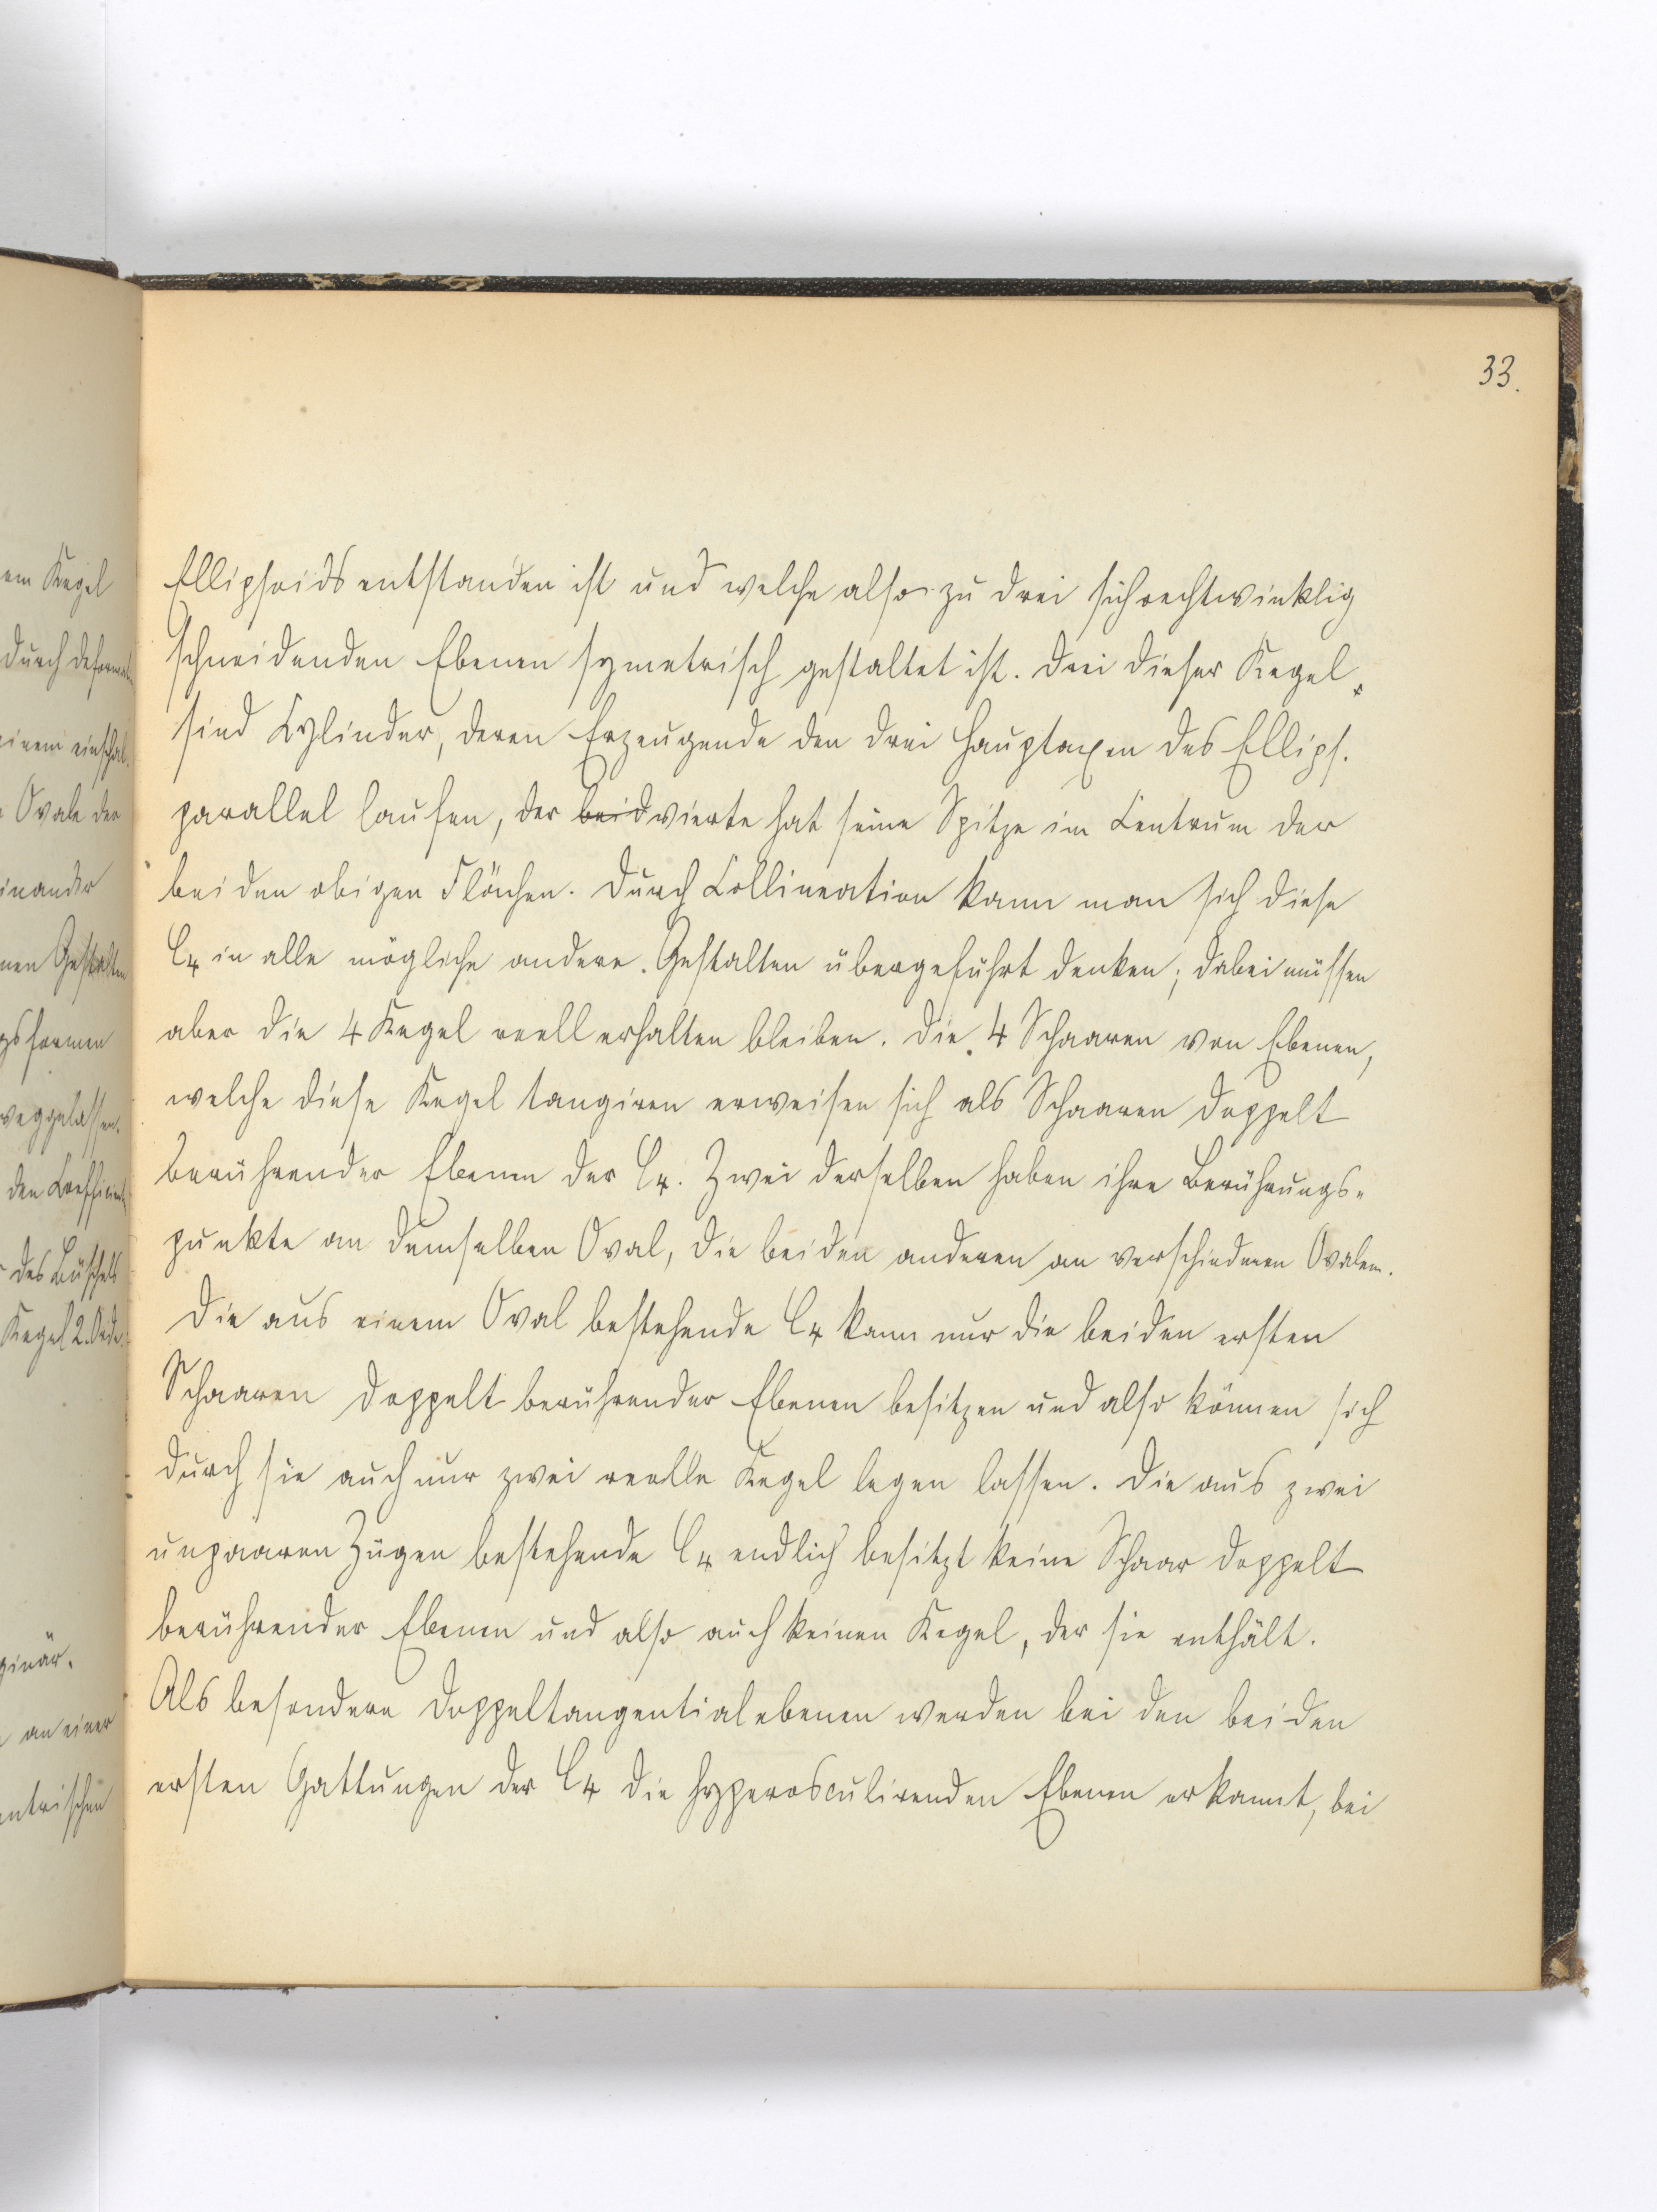 33.
Ellipsoids entstanden ist und welche also zu drei sich rechtwinklig
schneidenden Ebenen symetrisch gestaltet ist. Drei dieser Kegel
sind Cylinder, deren Erzeugende den drei Hauptaxen des Ellips.
parallel laufen, der beid vierte hat seine Spitze im Centrum der
beiden obigen Flächen. Durch Collineation kann man sich diese
C4 in alle mögliche andere Gestalten übergeführt denken; dabei müssen
aber die 4 Kegel reell erhalten bleiben. Die 4 Schaaren von Ebenen,
welche diese Kegel tangiren erweisen sich als Schaaren doppelt
berührender Ebenen der C4. Zwei derselben haben ihre Berührungs-
punkte an demselben Oval, die beiden anderen an verschiedenen Ovalen.
Die aus einem Oval bestehende C4 kann nur die beiden ersten
Schaaren doppelt berührender Ebenen besitzen und also können sich
durch sie auch nur zwei reelle Kegel legen lassen. Die aus zwei
unpaaren Zügen bestehende C4 endlich besitzt keine Schaar doppelt
berührender Ebenen und also auch keinen Kegel, der sie enthält.
Als besondere Doppeltangentialebenen werden bei den beiden
ersten Gattungen der C4 die hyperosculirenden Ebenen erkannt, bei
em Kegel
durch
einem
Ovale der
inander
nen Gestalten
gsformen
weggelassen.
den Coefficient
des Büschels
Kegel 2. Ordn.
ginär.
an einer
ntrischen